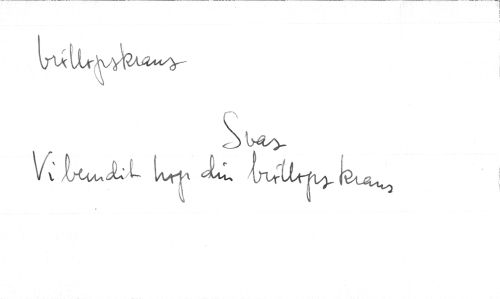 bröllopskrans
Svas
Vi bundit hop din bröllops krans